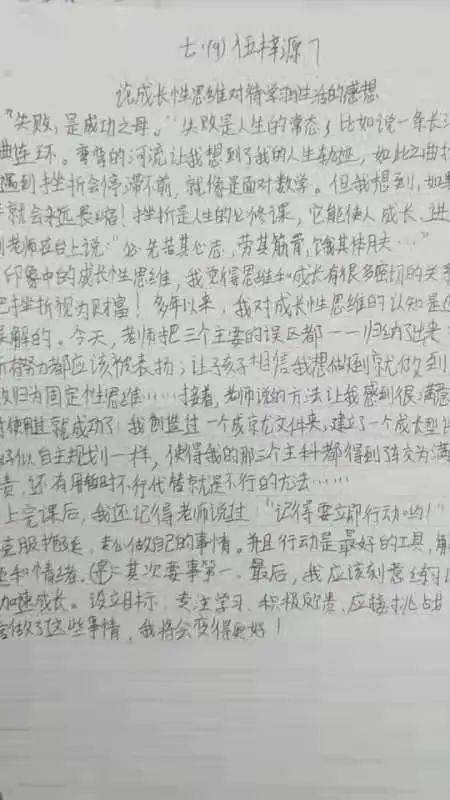 七.(9) 伍梓源 7
论成长性思维对待学习和生活的感想
"失败,是成功之母。"失败是人生的常态,比如说一年长
曲连环。弯弯的河流让我想到了我的人生轨迹,如此之曲折
遇到挫折会停滞不前,就像是面对数学。但我想到,如果
就会永远畏缩!挫折是人生的必修课,它能使人成长、进
老师在台上说:"必先苦其心志,劳其筋骨,饿其体肤…"
印象中的成长性思维,我觉得思维和成长有很多密切的关系
把挫折视为财富!多年以来,我对成长性思维的认知是
误解的。今天,老师把三个主要的误区都一一归纳了出来
所有努力都应该被表扬;让孩子相信我想做到就做到
归为固定性思维……接着,老师说的方法让我感到很满意
使用其就成功了:我创监过一个成就文件夹,建立了一个成长型
好似自主规划一样,使得我的那三个主科都得到了较为满
贵,还有用暂时不行代替就是不行的方法……
上完课后,我还记得老师说过:"记得要立即行动哟!"
克服拖延,专心做自己的事情。并且行动是最好的工具,解
和情绪。其次要事第一。最后,我应该刻意练习
加速成长。设立目标、专注学习、积极反馈、应接挑战
做了这些事情,我将会变得更好!